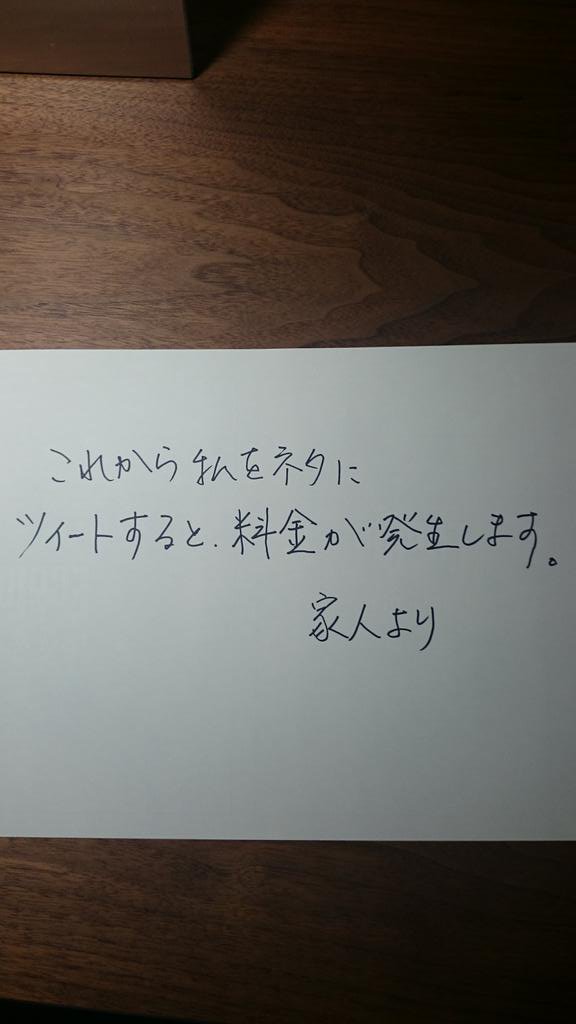 これから私をネタに
ツィートすると、料金が発生します。
家人より